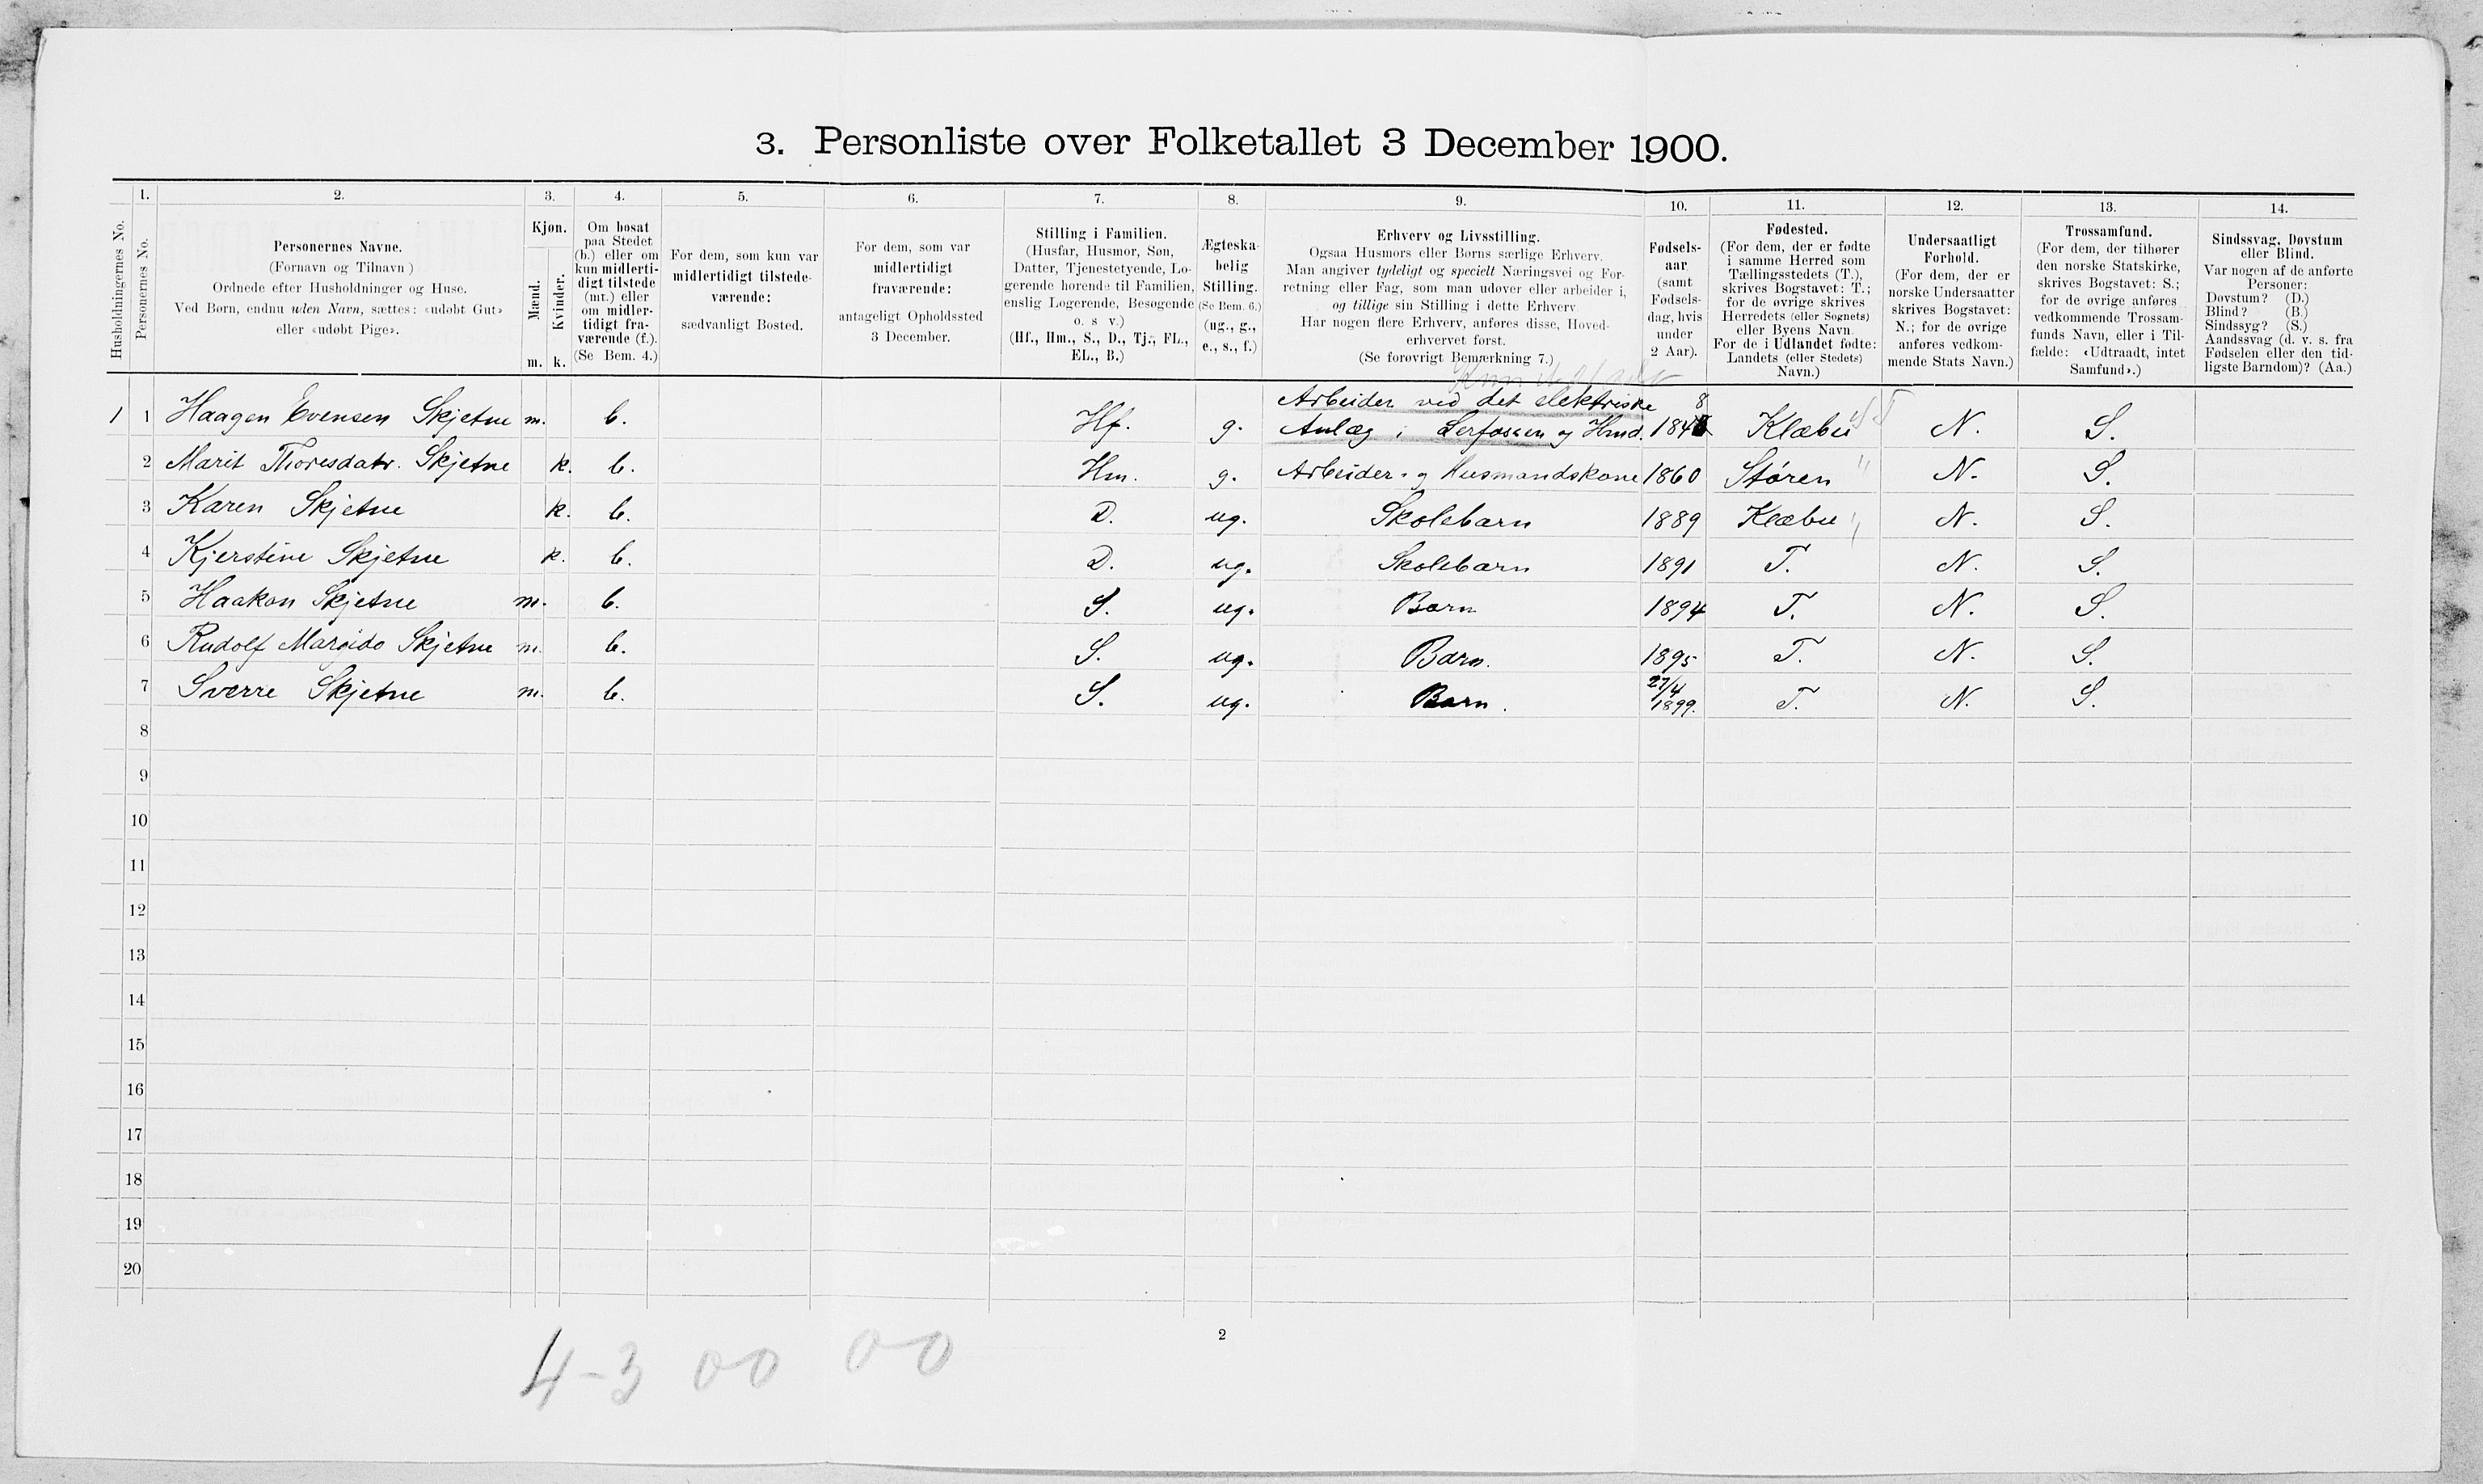 3. Personliste over Folketallet 3 December 1900.
1. 2. 3. 4. 5. 6. 7. 8. 9. 10. 11. 12. 13. 14.
Husholdningernes No.
Personernes No.
Personernes Navne.
(Fornavn og Tilnavn)
Ordnede efter Husholdninger og Huse.
Ved Børn, endnu uden Navn, sættes: «udøbt Gut»
eller «udøbt Pige».
Kjøn.
Mænd.
Kvinder.
m. k.
Om bosat
paa Stedet
(b.) eller om
kun midlerti-
digt tilstede
(mt.) eller
om midler-
tidigt fra-
værende (f.).
(Se Bem. 4.)
For dem, som kun var
midlertidigt tilstede-
værende:
sædvanligt Bosted.
For dem, som var
midlertidigt
fraværende:
antageligt Opholdssted
3 December.
Stilling i Familien.
(Husfar, Husmor, Søn,
Datter, Tjenestetyende, Lo-
gerende hørende til Familien,
enslig Logerende, Besøgende
o. s v.)
(Hf., Hm., S., D., Tj., FL.,
EL., B.)
Ægteska-
belig
Stilling.
(Se Bem. 6.)
(ug., g.,
e., s., f.)
Erhverv og Livsstilling.
Ogsaa Husmors eller Børns særlige Erhverv.
Man angiver tydeligt og specielt Næringsvei og For-
retning eller Fag, som man udøver eller arbeider i,
og tillige sin Stilling i dette Erhverv.
Har nogen flere Erhverv, anføres disse, Hoved-
erhvervet først.
(Se forøvrigt Bemærkning 7.)
Fødsels-
aar
(samt
Fødsels-
dag, hvis
under
2 Aar).
Fødested.
(For dem, der er fødte
i samme Herred som
Tællingsstedets (T.),
skrives Bogstavet: T.;
for de øvrige skrives
Herredets (eller Sognets)
eller Byens Navn.
For de i Udlandet fødte:
Landets (eller Stedets)
Navn.)
Undersaatligt
Forhold.
(For dem, der er
norske Undersaatter
skrives Bogstavet:
N.; for de øvrige
anføres vedkom-
mende Stats Navn.)
Trossamfund.
(For dem, der tilhører
den norske Statskirke,
skrives Bogstavet: S.;
for de øvrige anføres
vedkommende Trossam-
funds Navn, eller i Til-
fælde: «Udtraadt, intet
Samfund».)
Sindssvag, Døvstum
eller Blind.
Var nogen af de anførte
Personer:
Døvstum? (D.)
Blind? (B.)
Sindssyg? (S.)
Aandssvag (d. v. s. fra
Fødselen eller den tid-
ligste Barndom)? (Aa.)
Arbeider ved det elektriske 8
1 1 Haagen Evensen Skjetne m. b. Hf. g. Anlæg i Lerfossen og Hmd. 184 Klæbu N. S.
2 Marit Thoresdatr. Skjetne k. b. Hm. g. Arbeider- og Husmandskone 1860 Støren " N. S.
3 Karen Skjetne k. b. D. ug. Skolebarn 1889 Klæbu " N. S.
4 Kjerstine Skjetne k. b. D. ug. Skolebarn 1891 T. N. S.
5 Haakon Skjetne m. b. S. ug. Barn 1894 T. N. S.
6 Rudolf Margido Skjetne m. b. S. ug. Barn. 1895 T. N. S.
7 Sverre Skjetne m. b. S. ug. Barn. 27/4 1899. T. N. S.
8
9
10
11
12
13
14
15
16
17
18
19
20
2
4-3 00 00